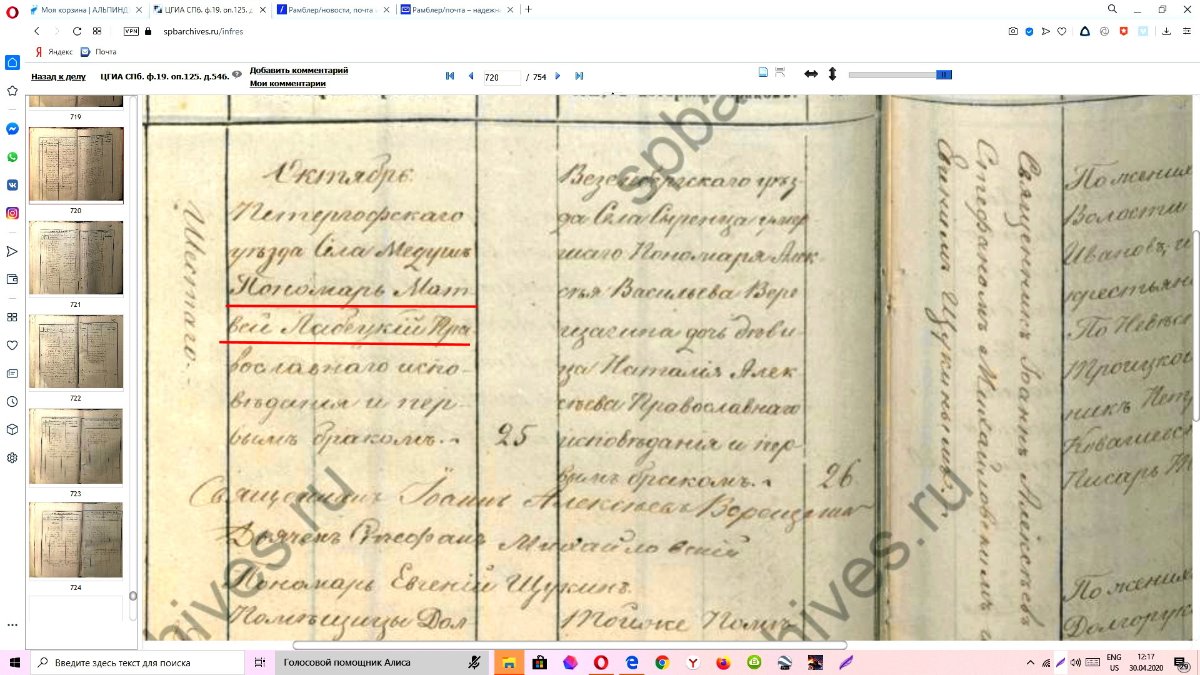 Моя корзина | АЛЬПИНД
ЦГИА СПб. ф.19. оп.125. д.
Рамблер/новости, почта
Рамблер/почта – надежна
VPN
spbarchives.ru/infres
Яндекс
Почта
Назад к делу
ЦГИА СПб. ф.19. оп.125. д.546.
Добавить комментарий
Мои комментарии
720 / 754
719
720
721
722
723
724
Шестаго.
Октябрь
Петергофскаго
уѣзда Села Медушъ
Пономарь Мат
вей Лабецкій Пра
вославнаго испо-
вѣданія и пер-
вымъ бракомъ.
25
Везенбергскаго уѣз-
да Села Сыренца умер
шаго Пономаря Алек
сѣя Васильева Вере
щагина дочь дѣви
ца Наталія Алек
сѣева Православнаго
исповѣданія и пер
вымъ бракомъ.
26
Священникъ Іоаннъ Алексѣевъ Верещагинъ
Дьячекъ Стефанъ Михайловскій
Пономарь Евгеній Щукинъ
Помѣщицы Дол
Тойже Помѣ
Священникъ Іоаннъ Алексѣевъ
Стефаномъ Михайловскимъ и
Щукинымъ.
По женихѣ
Волости
Ивановъ
крестьян
По Невѣс
Троицкой
никъ Петр
Писарь
По женихѣ
Долгорук
spba
hives.ru
hives.ru
Введите здесь текст для поиска
Голосовой помощник Алиса
ENG
US
12:17
30.04.2020